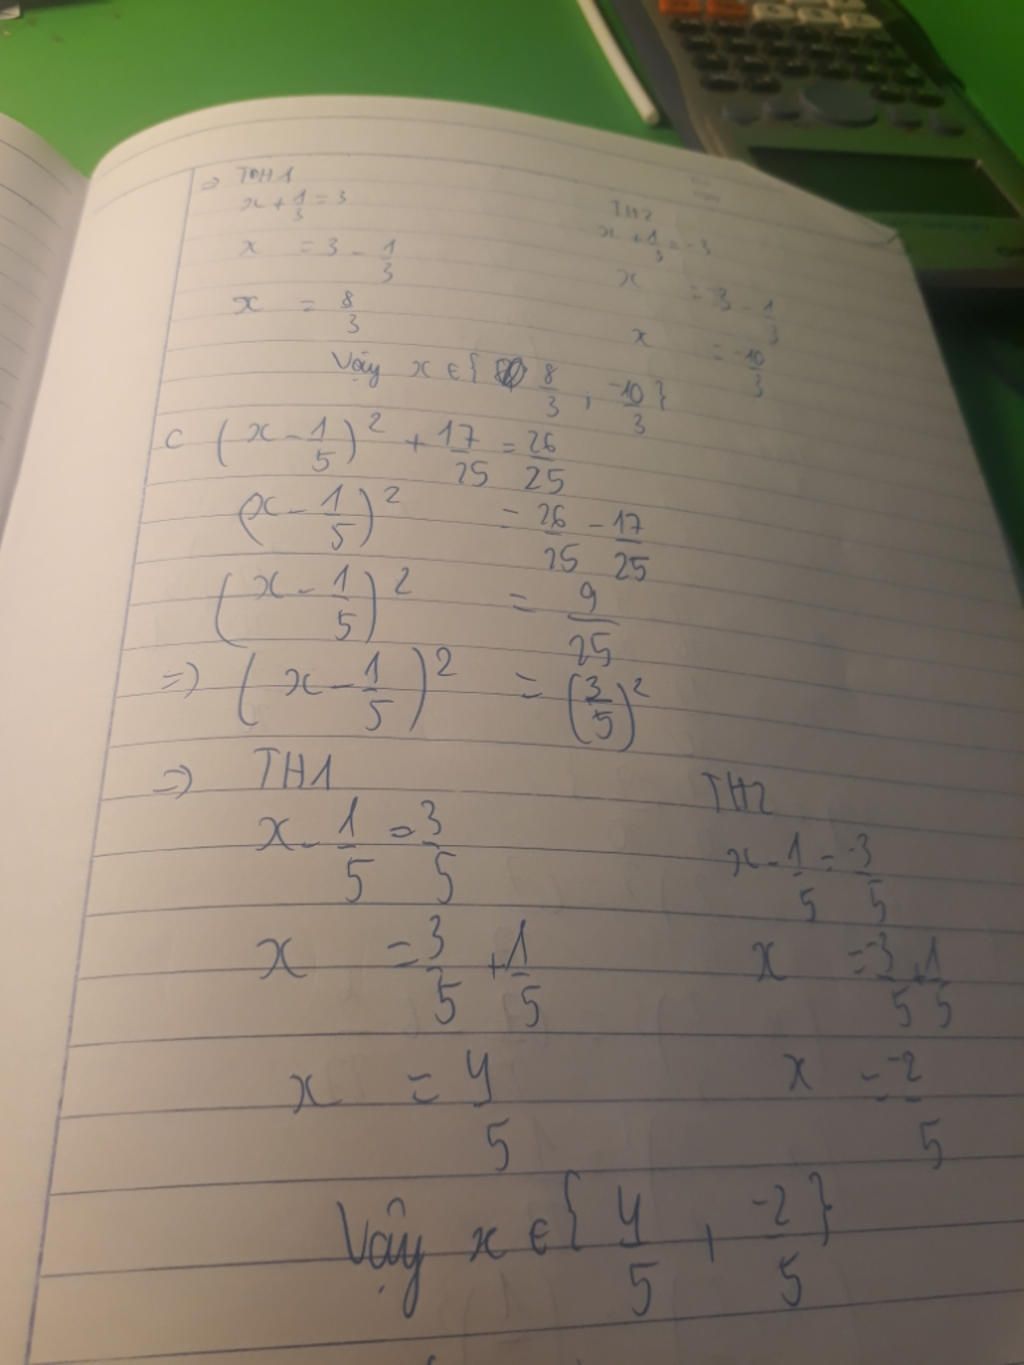 => TH1
x + 1/3 = 3
x = 3 - 1/3
x = 8/3
TH2
x + 1/3 = -3
x = -3 - 1/3
x = -10/3
Vậy x ∈ { 8/3 , -10/3 }
c (x - 1/5)² + 17/25 = 26/25
(x - 1/5)² = 26/25 - 17/25
(x - 1/5)² = 9/25
=> (x - 1/5)² = (3/5)²
=> TH1
x - 1/5 = 3/5
x = 3/5 + 1/5
x = 4/5
TH2
x - 1/5 = -3/5
x = -3/5 + 1/5
x = -2/5
Vậy x ∈ { 4/5 , -2/5 }